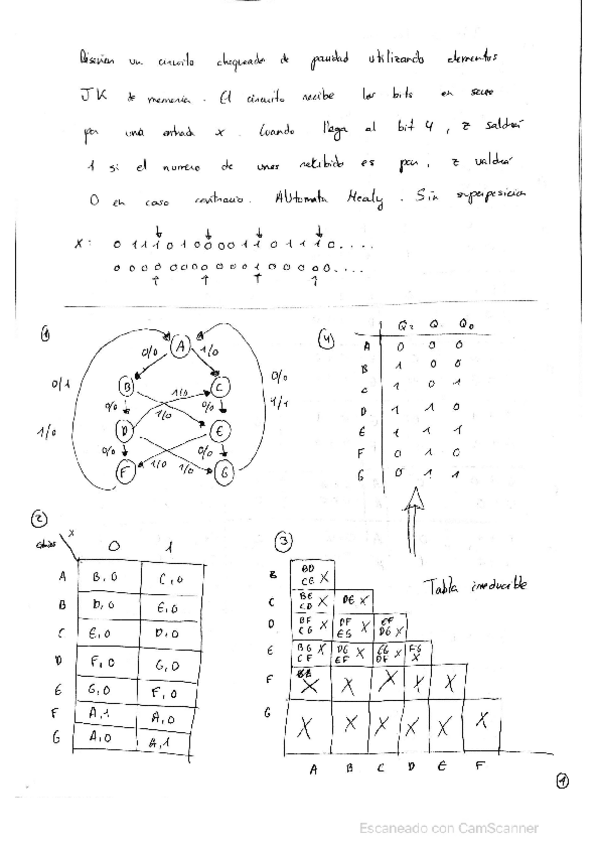 Diseñen un circuito chequeador de paridad utilizando elementos
JK de memoria. El circuito recibe los bits en serie
por una entrada x. Cuando llega al bit 4, z saldrá
1 si el numero de unos recibido es par, z valdrá
0 en caso contrario. Automata Mealy. Sin superposicion
X: 0 1 1 1 0 1 0 0 0 0 1 1 0 1 1 1 0 ....
0 0 0 0 0 0 0 0 0 0 0 1 0 0 0 0 0 ....
1
A
0/0 1/0
B C
0/1 0/0 1/0 0/0 0/0
1/0 1/0 1/1
D E
0/0 1/0 1/0 0/0
F G
4
Q2 Q Q0
A 0 0 0
B 1 0 0
C 1 0 1
D 1 1 0
E 1 1 1
F 0 1 0
G 0 1 1
Tabla irreducible
2
X
0 1
A B,0 C,0
B D,0 E,0
C E,0 D,0
D F,0 G,0
E G,0 F,0
F A,1 A,0
G A,0 A,1
3
B BD CE X
C BE CD X DE X
D BF CG X DF EG X EF DG X
E BG CF X DG EF X EG DF X FG X
F X X X X X
G X X X X X X
A B C D E F
1
Escaneado con CamScanner